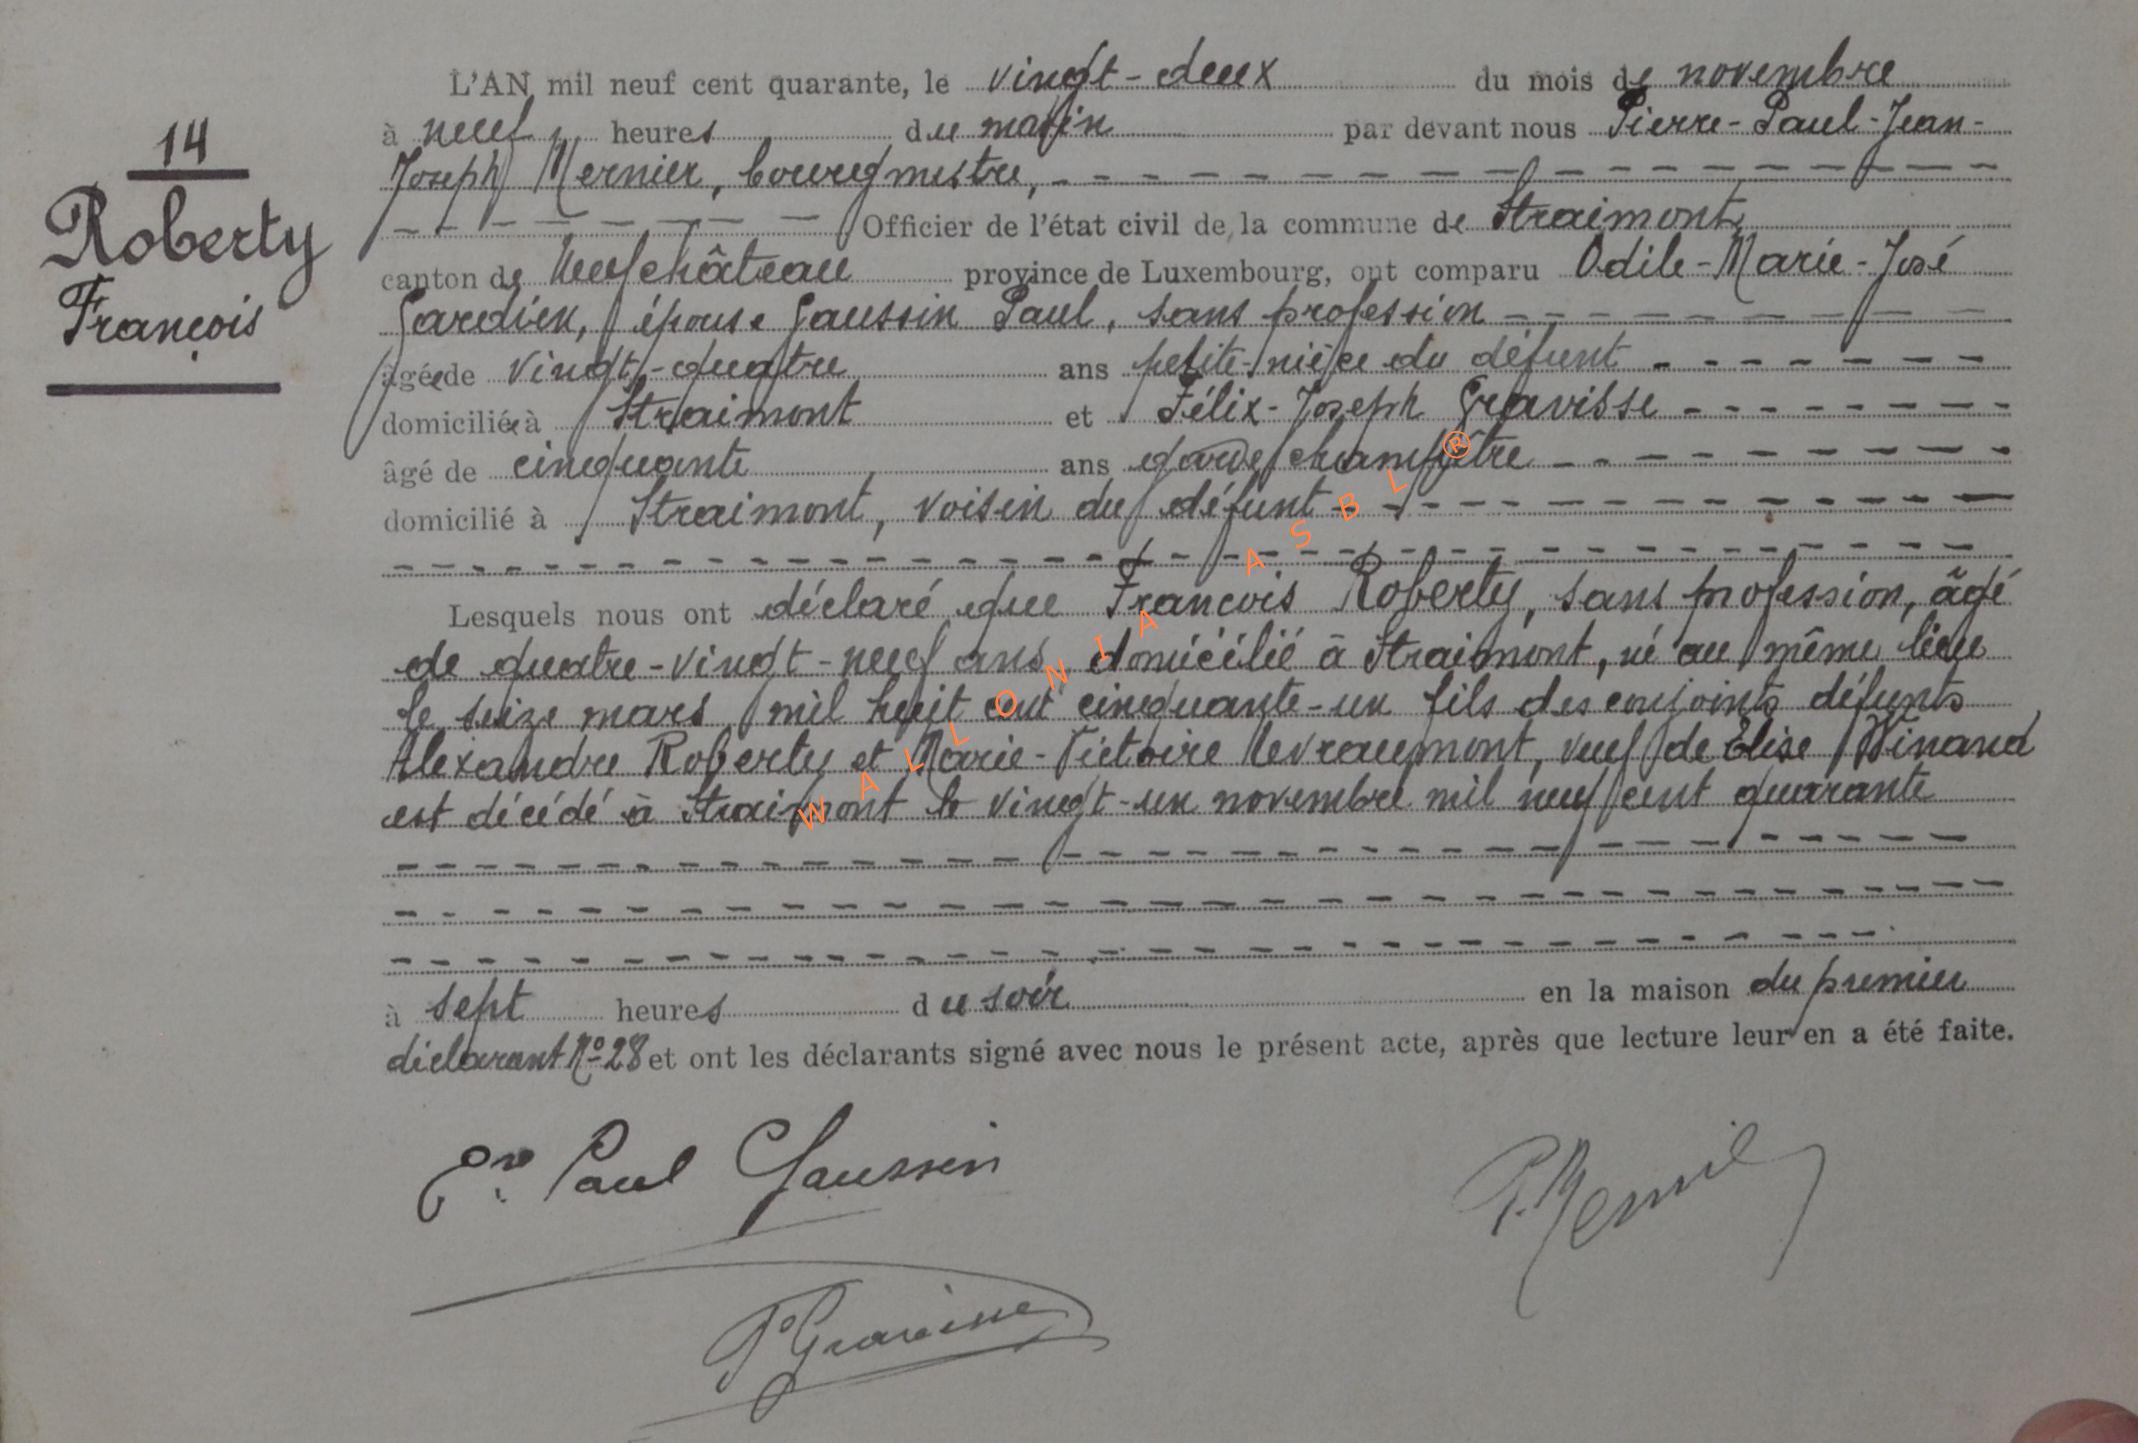 14
Roberty
François
L'AN mil neuf cent quarante, le vingt-deux du mois de novembre
à neuf heures du matin par devant nous Pierre-Paul-Jean-
Joseph Mernier, bourgmestre,
Officier de l'état civil de la commune de Straimont
canton de Neufchâteau province de Luxembourg, ont comparu Odile-Marie-José
Gardien, épouse Gaussin Paul, sans profession
âgée de vingt-quatre ans petite-nièce du défunt
domiciliée à Straimont et Félix-Joseph Gravisse
âgé de cinquante ans garde champêtre
domicilié à Straimont, voisin du défunt
Lesquels nous ont déclaré que François Roberty, sans profession, âgé
de quatre-vingt-neuf ans, domicilié à Straimont, né au même lieu
le seize mars mil huit cent cinquante-un fils des conjoints défunts
Alexandre Roberty et Marie-Victoire Nevraumont, veuf de Elise Winand
est décédé à Straimont le vingt-un novembre mil neuf cent quarante
à sept heures du soir en la maison du premier
déclarant No 28 et ont les déclarants signé avec nous le présent acte, après que lecture leur en a été faite.
Paul Gaussin
P. Mernier
Gravisse
WALLONIA ASBL ®